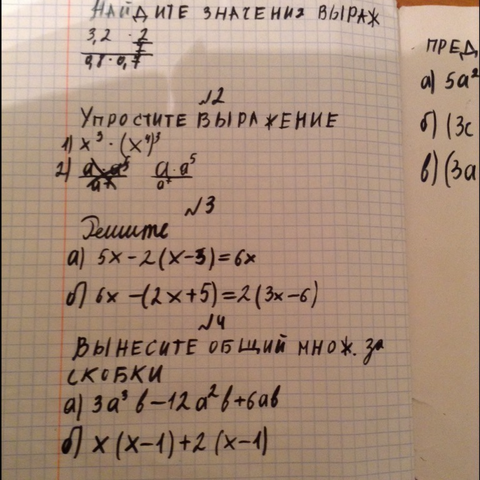 НАЙДИТЕ ЗНАЧЕНИЯ ВЫРАЖ
3,2 · 2
0,8 · 0,7
№2
УПРОСТИТЕ ВЫРАЖЕНИЕ
1) x³ · (x⁴)³
2) a · a⁵ / a⁷ a · a⁵ / a⁷
№3
Решите
а) 5x - 2(x - 3) = 6x
б) 6x - (2x + 5) = 2(3x - 6)
№4
ВЫНЕСИТЕ ОБЩИЙ МНОЖ. за
СКОБКИ
а) 3a³b - 12a²b + 6ab
б) x(x - 1) + 2(x - 1)
ПРЕД
а) 5a²
б) (3c
в) (3a